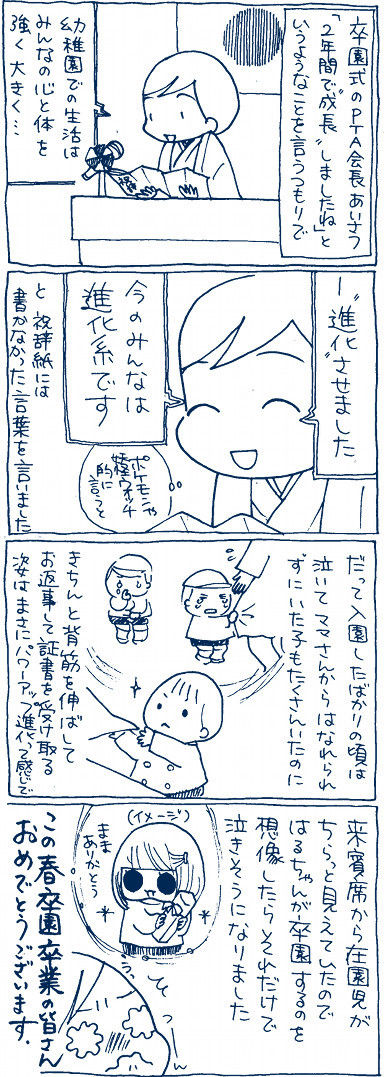 卒園式のPTA会長あいさつ
「2年間で"成長"しましたね」と
いうようなことを言うつもりで
幼稚園での生活は
みんなの心と体を
強く大きく…
祝辞
ー"進化"させました
今のみんなは
進化系です
ポケモンや
妖怪ウォッチ
的に
言うと
と祝辞紙には
書かなかった言葉を言いました
だって入園したばかりの頃は
泣いてママさんからはなれられ
ずにいた子もたくさんいたのに
きちんと背筋を伸ばして
お返事して証書を受け取る
姿はまさにパワーアップ進化って感じで
来賓席から在園児が
ちらっと見えていたので
はるちゃんが卒園するのを
想像したらそれだけで
泣きそうになりました
(イメージ)
まま
ありがとう
この春卒園卒業の皆さん
おめでとうございます.